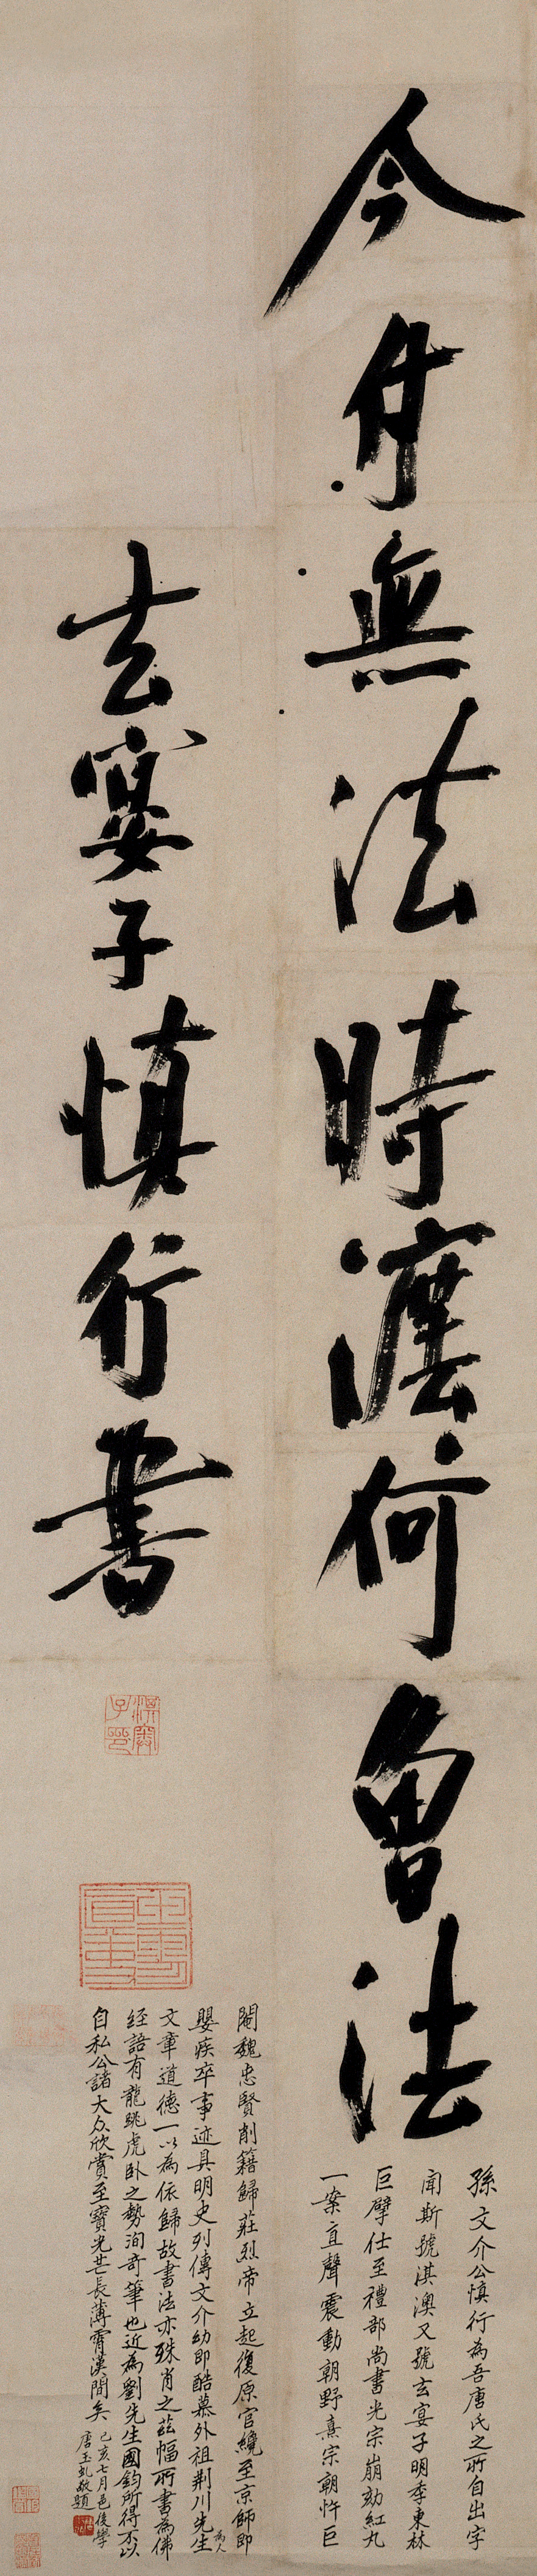 今付無法時灋何曾法
玄宴子慎行書
孫文介公慎行為吾唐氏之所自出字
聞斯號淇澳又號玄宴子明季東林
巨擘仕至禮部尚書光宗崩劾紅丸
一案直聲震動朝野熹宗朝忤巨
閹魏忠賢削籍歸莊烈帝立起復原官纔至京師即
嬰疾卒事迹具明史列傳文介幼即酷慕外祖荊川先生為人
文章道德一以為依歸故書法亦殊肖之茲幅所書為佛
經語有龍跳虎臥之勢洵奇筆也近為劉先生國鈞所得不以
自私公諸大众欣賞至寶光芒長薄霄漢間矣己亥七月邑後學
唐玉虬敬題